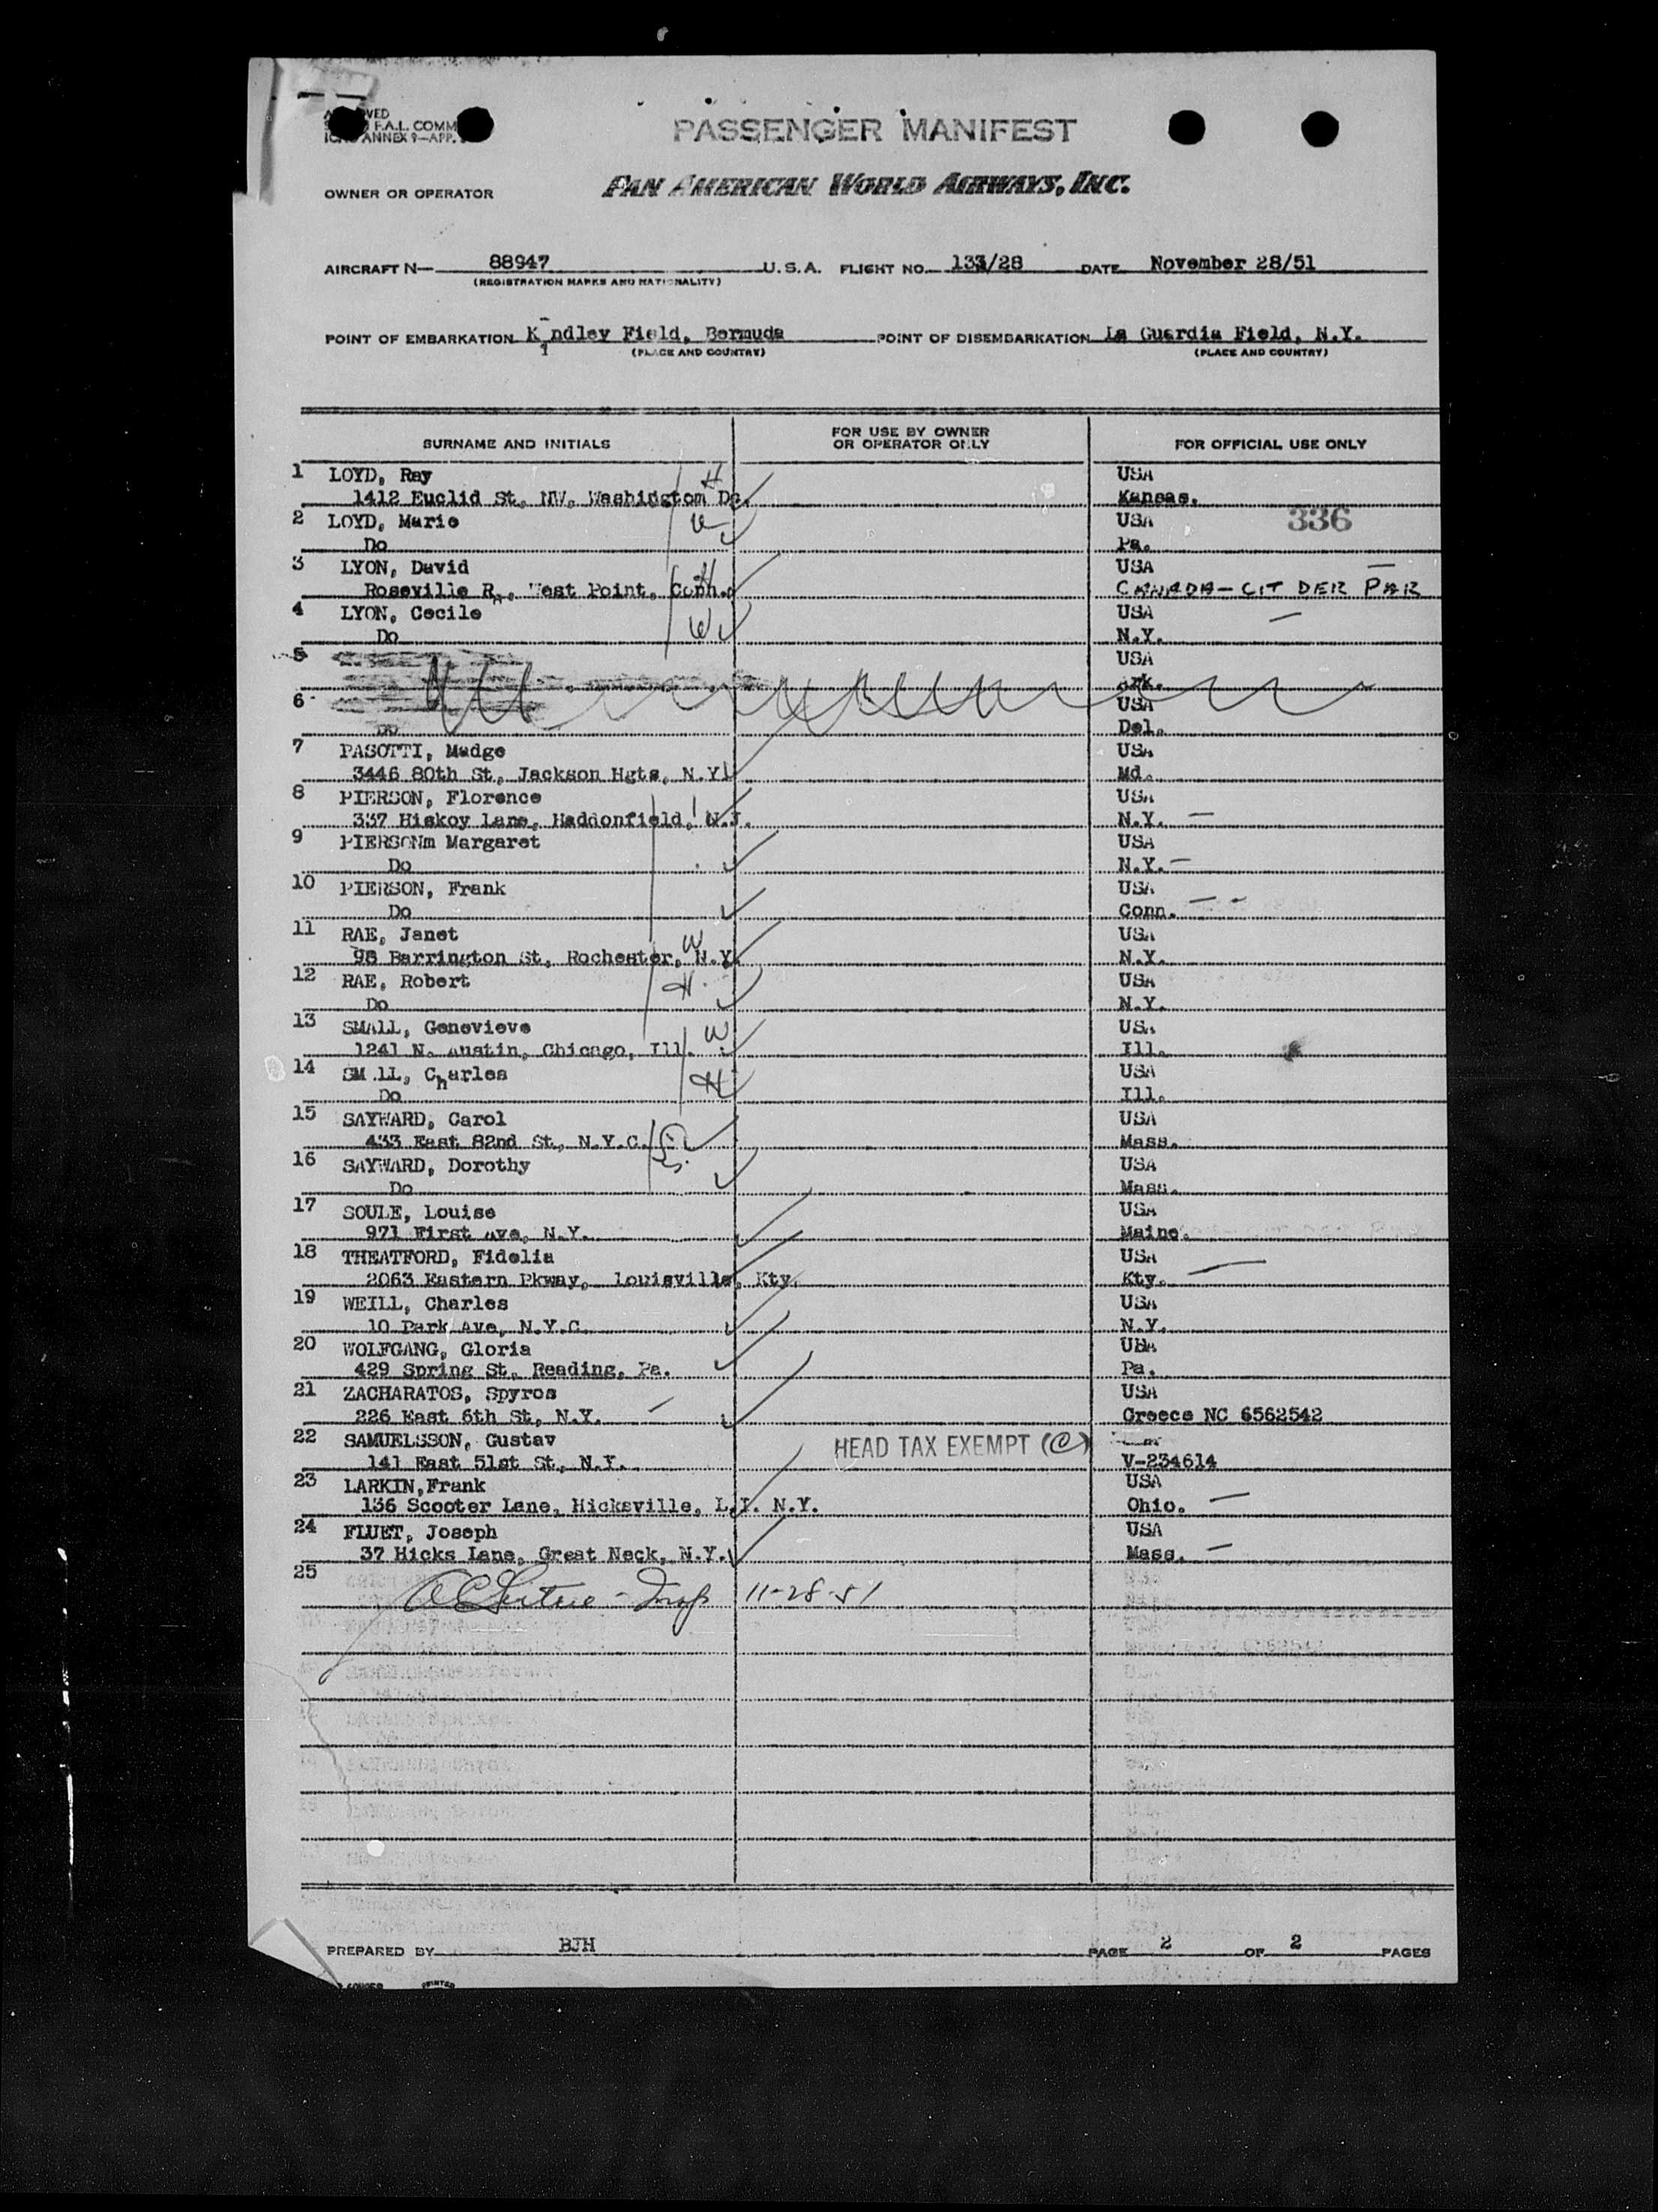 PASSENGER MANIFEST
F.A.L. COMM
ANNEX 9—APP.
OWNER OR OPERATOR
PAN AMERICAN WORLD AIRWAYS, INC.
AIRCRAFT N— 88947 U.S.A. FLIGHT NO. 133/28 DATE November 28/51
(REGISTRATION MARKS AND NATIONALITY)
POINT OF EMBARKATION Kindley Field, Bermuda POINT OF DISEMBARKATION La Guardia Field, N.Y.
(PLACE AND COUNTRY) (PLACE AND COUNTRY)
SURNAME AND INITIALS FOR USE BY OWNER OR OPERATOR ONLY FOR OFFICIAL USE ONLY
1 LOYD, Ray H USA
1412 Euclid St, NW, Washidgtom Dc. Kansas.
2 LOYD, Marie USA 336
Do Pa.
3 LYON, David H USA
Roseville R., West Point, Conn. CANADA-CIT DER PAR
4 LYON, Cecile USA
Do W N.Y.
5 USA
Ark.
6 USA
Do Del.
7 PASOTTI, Madge USA
3446 80th St, Jackson Hgts, N.Y. Md.
8 PIERSON, Florence USA
337 Hiskoy Lane, Haddonfield, N.J. N.Y. —
9 PIERSONm Margaret USA
Do N.Y. —
10 PIERSON, Frank USA
Do Conn. — -
11 RAE, Janet W USA
98 Barrington St, Rochester, N.Y. N.Y.
12 RAE, Robert H. USA
Do N.Y.
13 SMALL, Genevieve W USA
1241 N. Austin, Chicago, Ill. Ill.
14 SMALL, Charles H USA
Do Ill.
15 SAYWARD, Carol USA
433 East 82nd St, N.Y.C. Mass.
16 SAYWARD, Dorothy USA
Do Mass.
17 SOULE, Louise USA
971 First Ave, N.Y. Maine.
18 THEATFORD, Fidelia USA
2063 Eastern Pkway, Louisville, Kty. Kty. —
19 WEILL, Charles USA
10 Park Ave, N.Y.C. N.Y.
20 WOLFGANG, Gloria USA
429 Spring St, Reading, Pa. Pa.
21 ZACHARATOS, Spyros USA
226 East 6th St, N.Y. — Greece NC 6562542
22 SAMUELSSON, Gustav HEAD TAX EXEMPT (C)
141 East 51st St, N.Y. V-234614
23 LARKIN,Frank USA
136 Scooter Lane, Hicksville, L.I. N.Y. Ohio. —
24 FLUET, Joseph USA
37 Hicks Lane, Great Neck, N.Y. Mass. —
25
11-28-51
PREPARED BY BJH PAGE 2 OF 2 PAGES
PRINTED